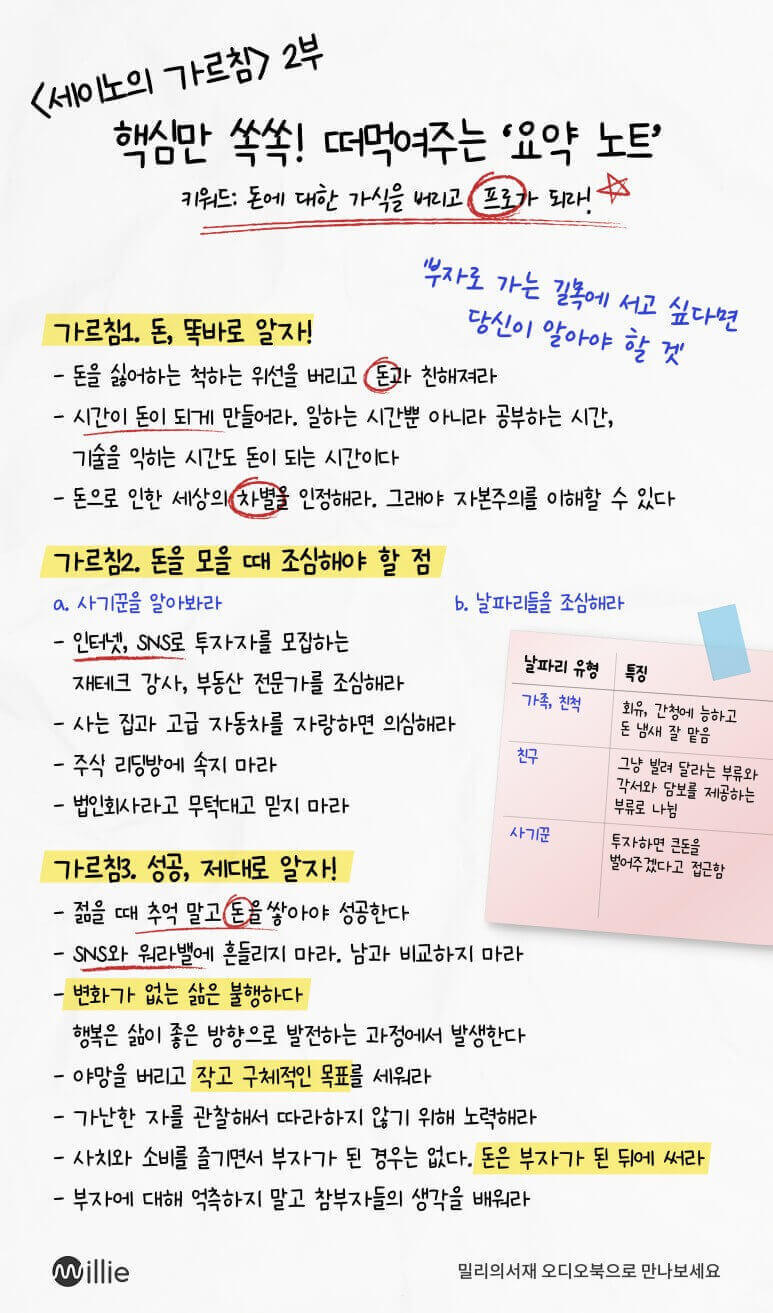 <세이노의 가르침> 2부
핵심만 쏙쏙! 떠먹여주는 '요약 노트'
키워드: 돈에 대한 가식을 버리고 프로가 되라!
"부자로 가는 길목에 서고 싶다면
당신이 알아야 할 것"
가르침1. 돈, 똑바로 알자!
- 돈을 싫어하는 척하는 위선을 버리고 돈과 친해져라
- 시간이 돈이 되게 만들어라. 일하는 시간뿐 아니라 공부하는 시간,
기술을 익히는 시간도 돈이 되는 시간이다
- 돈으로 인한 세상의 차별을 인정해라. 그래야 자본주의를 이해할 수 있다
가르침2. 돈을 모을 때 조심해야 할 점
a. 사기꾼을 알아봐라
- 인터넷, SNS로 투자자를 모집하는
재테크 강사, 부동산 전문가를 조심해라
- 사는 집과 고급 자동차를 자랑하면 의심해라
- 주식 리딩방에 속지 마라
- 법인회사라고 무턱대고 믿지 마라
b. 날파리들을 조심해라
날파리 유형 특징
가족, 친척 회유, 간청에 능하고
돈 냄새 잘 맡음
친구 그냥 빌려 달라는 부류와
각서와 담보를 제공하는
부류로 나뉨
사기꾼 투자하면 큰돈을
벌어주겠다고 접근함
가르침3. 성공, 제대로 알자!
- 젊을 때 추억 말고 돈을 쌓아야 성공한다
- SNS와 워라밸에 흔들리지 마라. 남과 비교하지 마라
- 변화가 없는 삶은 불행하다
행복은 삶이 좋은 방향으로 발전하는 과정에서 발생한다
- 야망을 버리고 작고 구체적인 목표를 세워라
- 가난한 자를 관찰해서 따라하지 않기 위해 노력해라
- 사치와 소비를 즐기면서 부자가 된 경우는 없다. 돈은 부자가 된 뒤에 써라
- 부자에 대해 억측하지 말고 참부자들의 생각을 배워라
millie
밀리의서재 오디오북으로 만나보세요